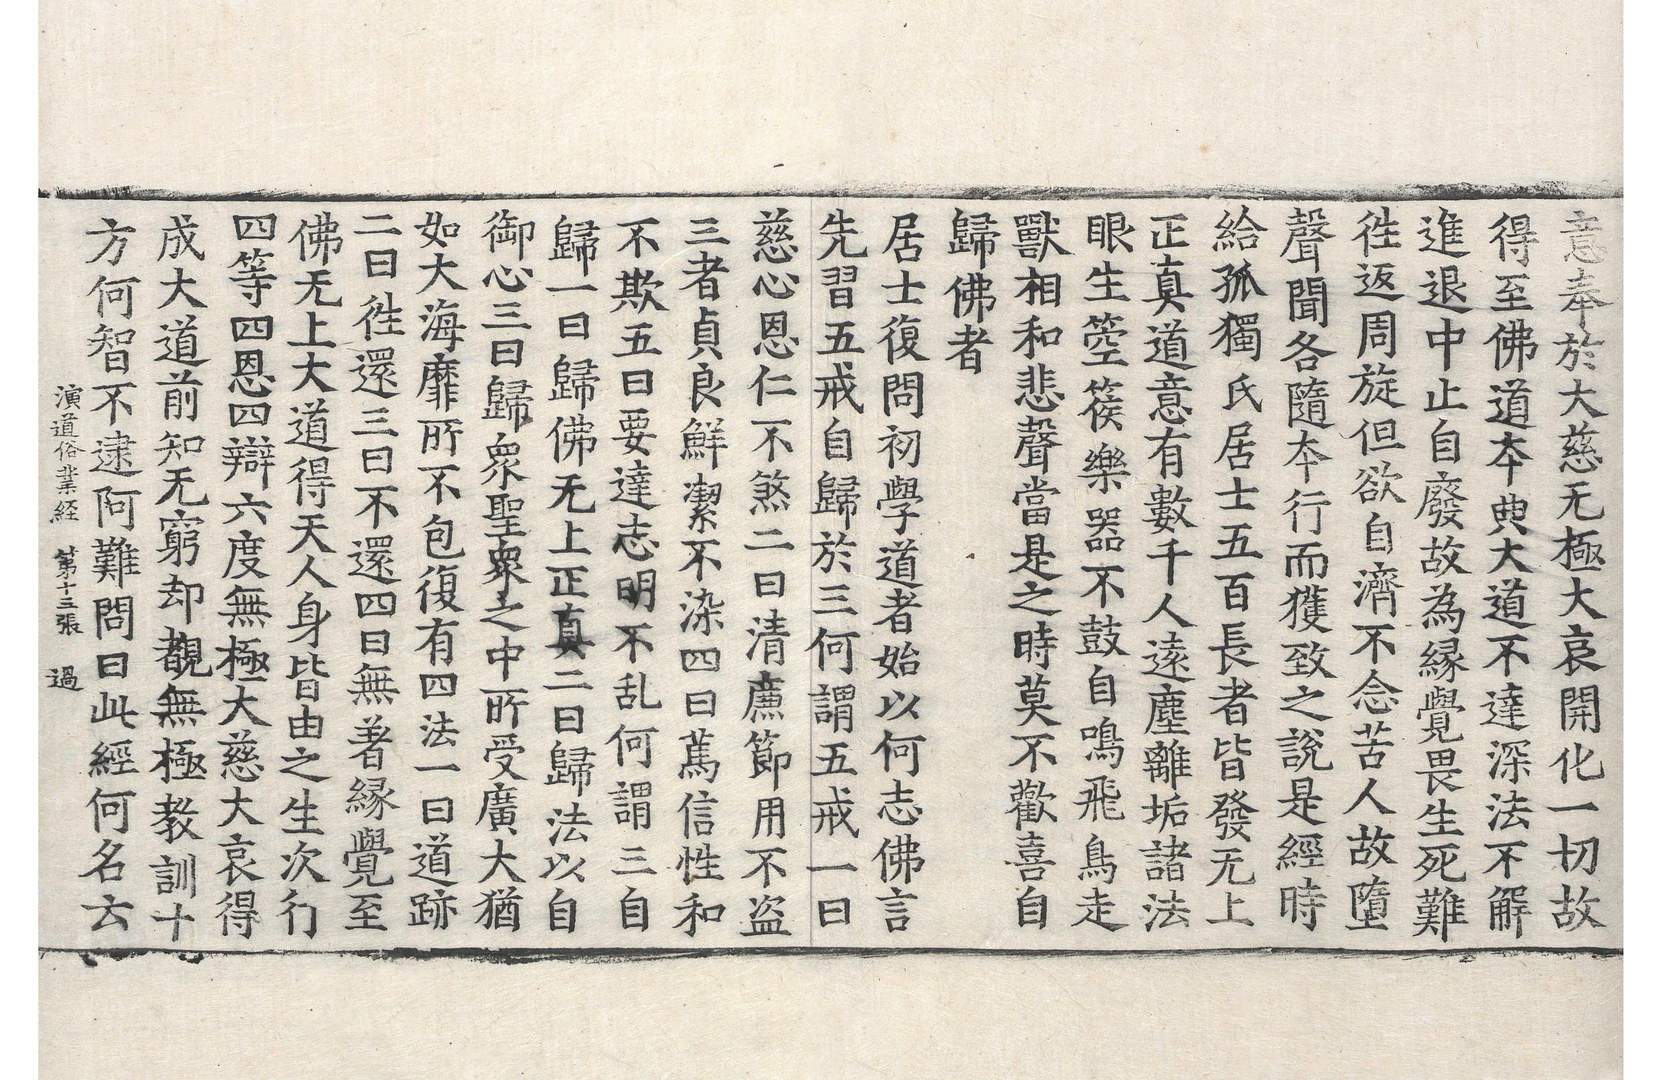 意奉於大慈无極大哀開化一切故
得至佛道夲典大道不達深法不解
進退中止自廢故為縁覺畏生死難
徃返周旋但欲自濟不念苦人故墮
聲聞各隨夲行而獲致之說是經時
給孤獨氏居士五百長者皆發无上
正真道意有數千人逺塵離垢諸法
眼生箜篌樂器不鼓自鳴飛鳥走
獸相和悲聲當是之時莫不歡喜自
歸佛者
居士復問初學道者始以何志佛言
先習五戒自歸於三何謂五戒一曰
慈心恩仁不煞二曰清廉節用不盗
三者貞良鮮潔不染四曰萬信性和
不欺五曰要達志明不乱何謂三自
歸一曰歸佛无上正真二曰歸法以自
御心三曰歸眾聖衆之中所受廣大猶
如大海靡所不包復有四法一曰道跡
二曰徃還三曰不還四曰無著縁覺至
佛无上大道得天人身皆由之生次行
四等四恩四辯六度無極大慈大哀得
成大道前知无窮却覩無極教訓十
方何智不逮阿難問曰此經何名云
演道俗業経 第十三張 過